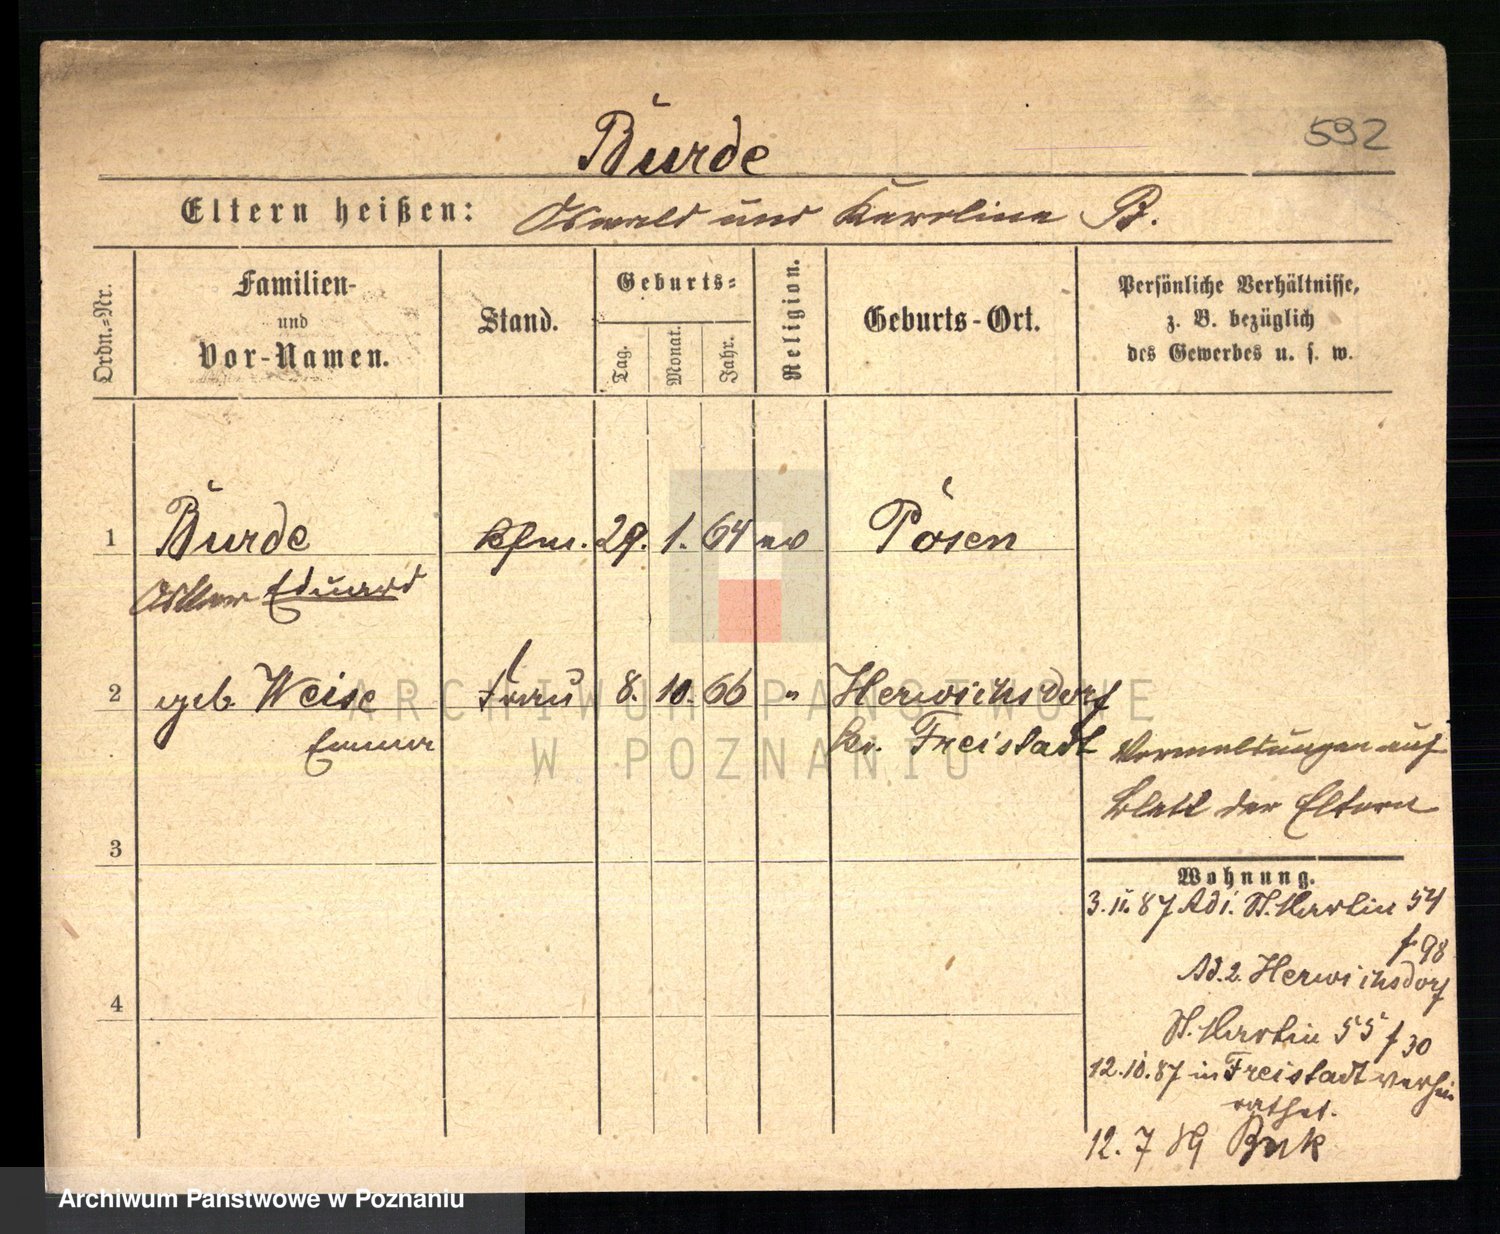 592
Burde
Eltern heißen: Oswald und Karoline B.
Ordn.-Nr.
Familien-
und
Vor-Namen.
Stand.
Geburts-
Tag.
Monat.
Jahr.
Religion.
Geburts-Ort.
Persönliche Verhältnisse,
z. B. bezüglich
des Gewerbes u. s. w.
1 Burde Kfm. 29. 1. 64 ev Posen
Eduard
2 geb. Weise Frau 8. 10. 66 " Herwichsdorf
Emma Kr. Freistadt
Vermeldungen auf
Blatt der Eltern
3
Wohnung.
3.11.87 St. Martin 54
f 98
Herwichsdorf
4
St. Martin 55 f 30
12.10.87 in Freistadt verhei
rathet.
12. 7 89 Buk
ARCHIWUM PAŃSTWOWE
W POZNANIU
Archiwum Państwowe w Poznaniu